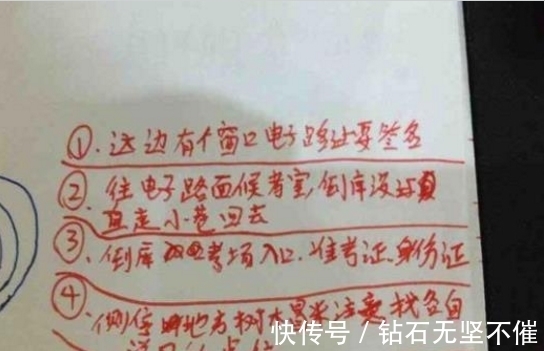 ①、这边有个窗口电子路过要签名
②、往电子路面候考室,倒库没过
直走小巷回去
③、倒库考场入口.准考证.身份证
④、侧位地方树木 找各自
快传号 / 钻石无坚不催